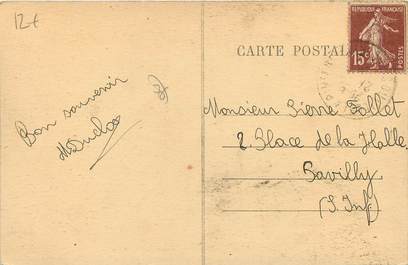 12t
CARTE POSTALE
REPUBLIQUE FRANÇAISE
15c
POSTES
Bon souvenir
Monsieur Pierre Follet
2. Place de la Halle
Pavilly
(S. Inf)